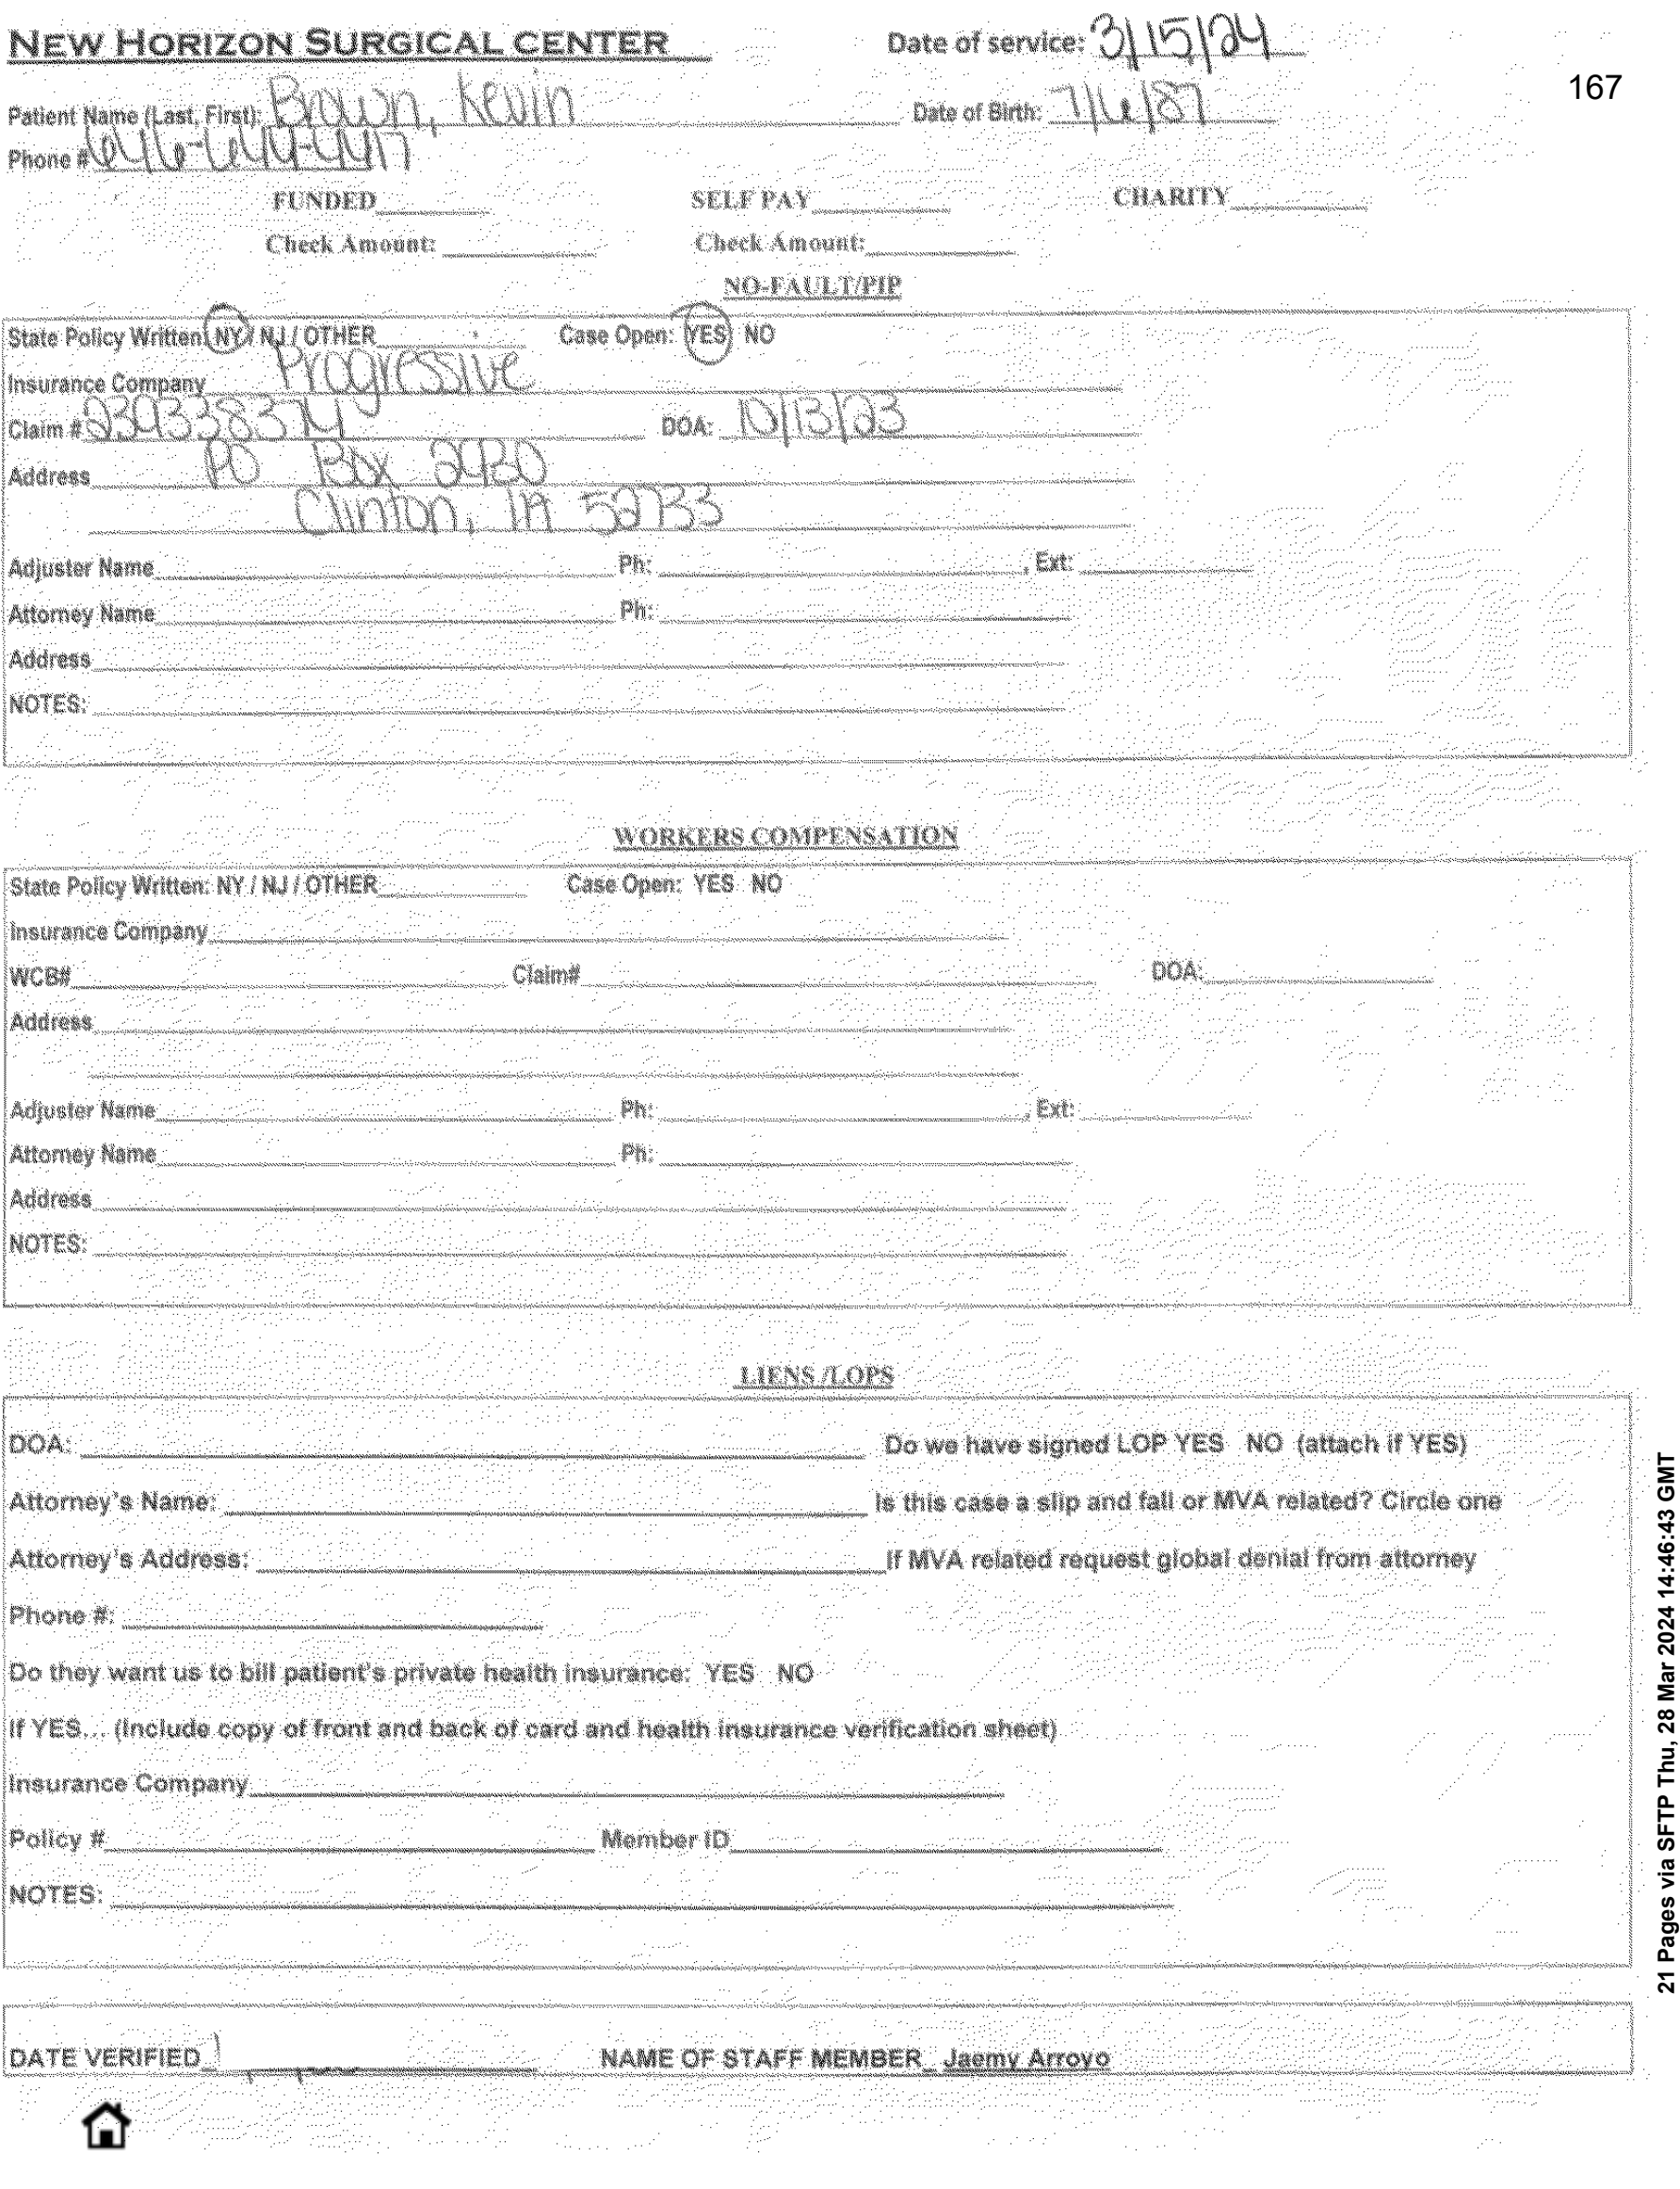 NEW HORIZON SURGICAL CENTER Date of service: 3/15/24
167
Patient Name (Last, First): Brown, Kevin Date of Birth: 7/6/87
Phone # 646-644-4417
FUNDED SELF PAY CHARITY
Check Amount: Check Amount:
NO-FAULT/PIP
State Policy Written: NY / NJ / OTHER Case Open: YES NO
Insurance Company Progressive
Claim # 239338374 DOA: 10/13/23
Address PO Box 2930
Clinton, IA 52733
Adjuster Name Ph: , Ext:
Attorney Name Ph:
Address
NOTES:
WORKERS COMPENSATION
State Policy Written: NY / NJ / OTHER Case Open: YES NO
Insurance Company
WCB# Claim# DOA:
Address
Adjuster Name Ph: , Ext:
Attorney Name Ph:
Address
NOTES:
LIENS /LOPS
DOA: Do we have signed LOP YES NO (attach if YES)
Attorney's Name: Is this case a slip and fall or MVA related? Circle one
Attorney's Address: If MVA related request global denial from attorney
Phone #:
Do they want us to bill patient's private health insurance: YES NO
If YES... (Include copy of front and back of card and health insurance verification sheet)
Insurance Company
Policy # Member ID
NOTES:
DATE VERIFIED NAME OF STAFF MEMBER Jaemy Arroyo
21 Pages via SFTP Thu, 28 Mar 2024 14:46:43 GMT